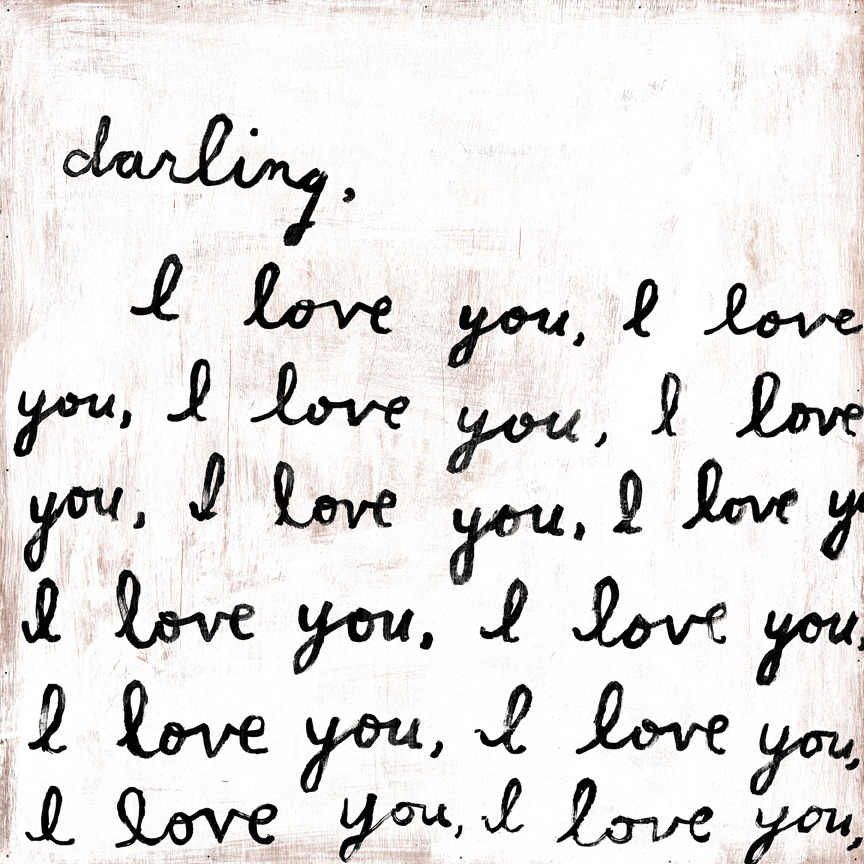 darling,
I love you, I love
you, I love you, I love
you, I love you, I love
I love you, I love you,
I love you, I love you,
I love you, I love you,